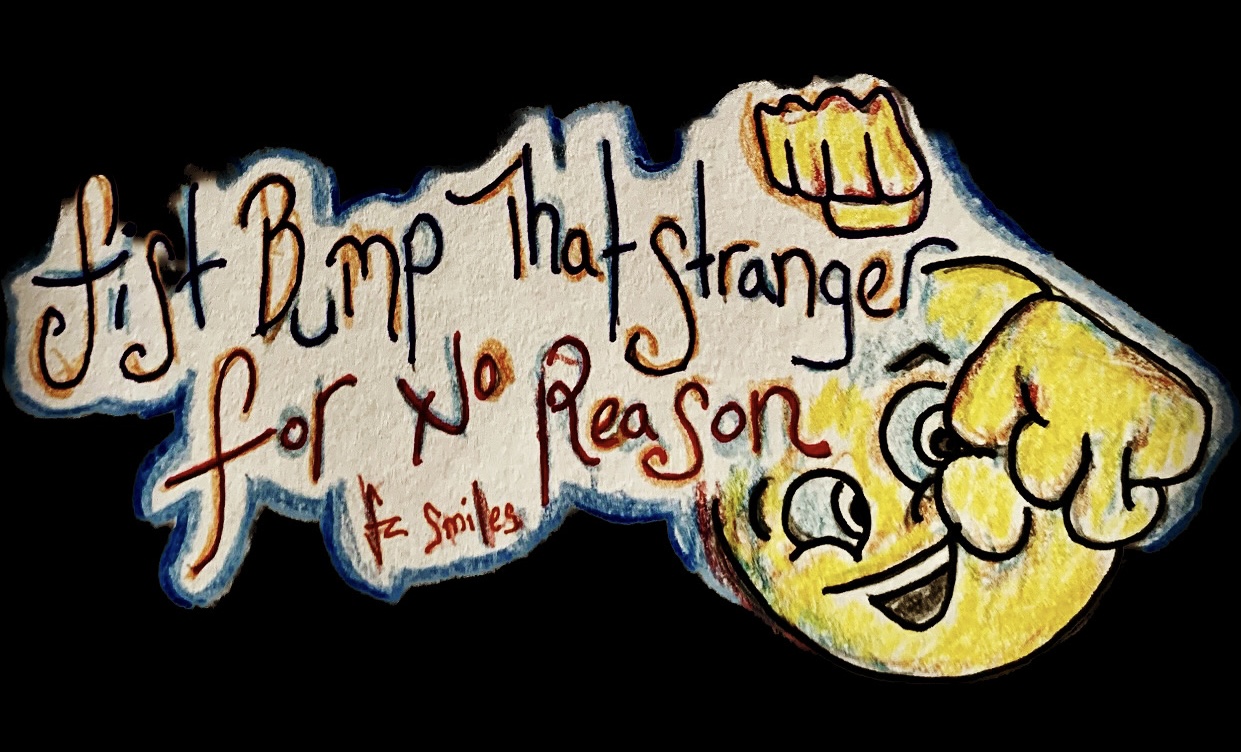 fist Bump That stranger
for No Reason
fz smiles